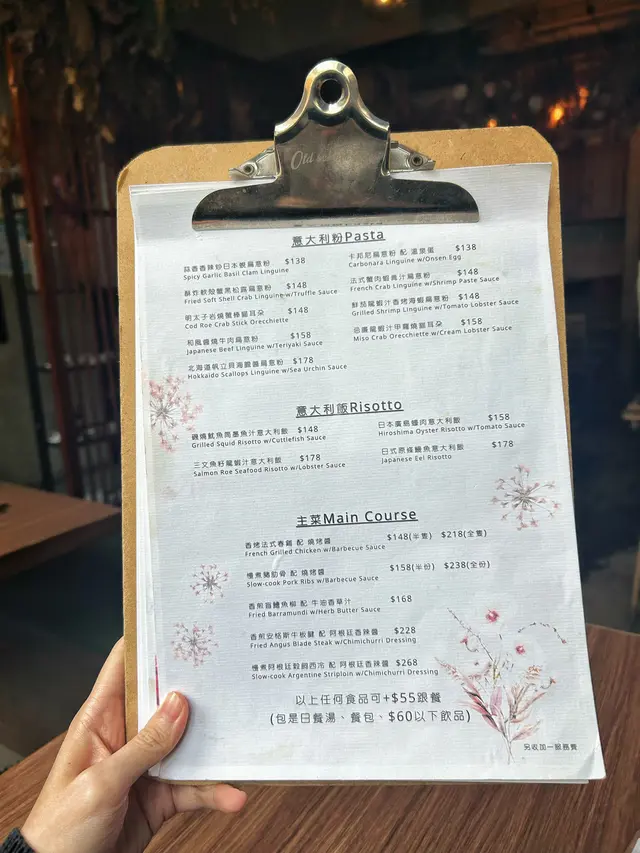 Old
意大利粉Pasta
蒜香香辣炒日本蜆扁意粉 $138
Spicy Garlic Basil Clam Linguine
酥炸軟殼蟹黑松露扁意粉 $148
Fried Soft Shell Crab Linguine w/Truffle Sauce
明太子岩燒蟹棒貓耳朵 $148
Cod Roe Crab Stick Orecchiette
和風醬燒牛肉扁意粉 $158
Japanese Beef Linguine w/Teriyaki Sauce
北海道帆立貝海膽醬扁意粉 $178
Hokkaido Scallops Linguine w/Sea Urchin Sauce
卡邦尼扁意粉 配 溫泉蛋 $138
Carbonara Linguine w/Onsen Egg
法式蟹肉蝦膏汁扁意粉 $148
French Crab Linguine w/Shrimp Paste Sauce
鮮茄龍蝦汁香烤海蝦扁意粉 $148
Grilled Shrimp Linguine w/Tomato Lobster Sauce
忌廉龍蝦汁甲羅燒貓耳朵 $158
Miso Crab Orecchiette w/Cream Lobster Sauce
意大利飯Risotto
磯燒魷魚筒墨魚汁意大利飯 $148
Grilled Squid Risotto w/Cuttlefish Sauce
三文魚籽龍蝦汁意大利飯 $178
Salmon Roe Seafood Risotto w/Lobster Sauce
日本廣島蠔肉意大利飯 $158
Hiroshima Oyster Risotto w/Tomato Sauce
日式原條鰻魚意大利飯 $178
Japanese Eel Risotto
主菜Main Course
香烤法式春雞 配 燒烤醬 $148(半隻) $218(全隻)
French Grilled Chicken w/Barbecue Sauce
慢煮豬肋骨 配 燒烤醬 $158(半份) $238(全份)
Slow-cook Pork Ribs w/Barbecue Sauce
香煎盲鰽魚柳 配 牛油香草汁 $168
Fried Barramundi w/Herb Butter Sauce
香煎安格斯牛板腱 配 阿根廷香辣醬 $228
Fried Angus Blade Steak w/Chimichurri Dressing
慢煮阿根廷穀飼西冷 配 阿根廷香辣醬 $268
Slow-cook Argentine Striploin w/Chimichurri Dressing
以上任何食品可+$55跟餐
(包是日餐湯、餐包、$60以下飲品)
另收加一服務費